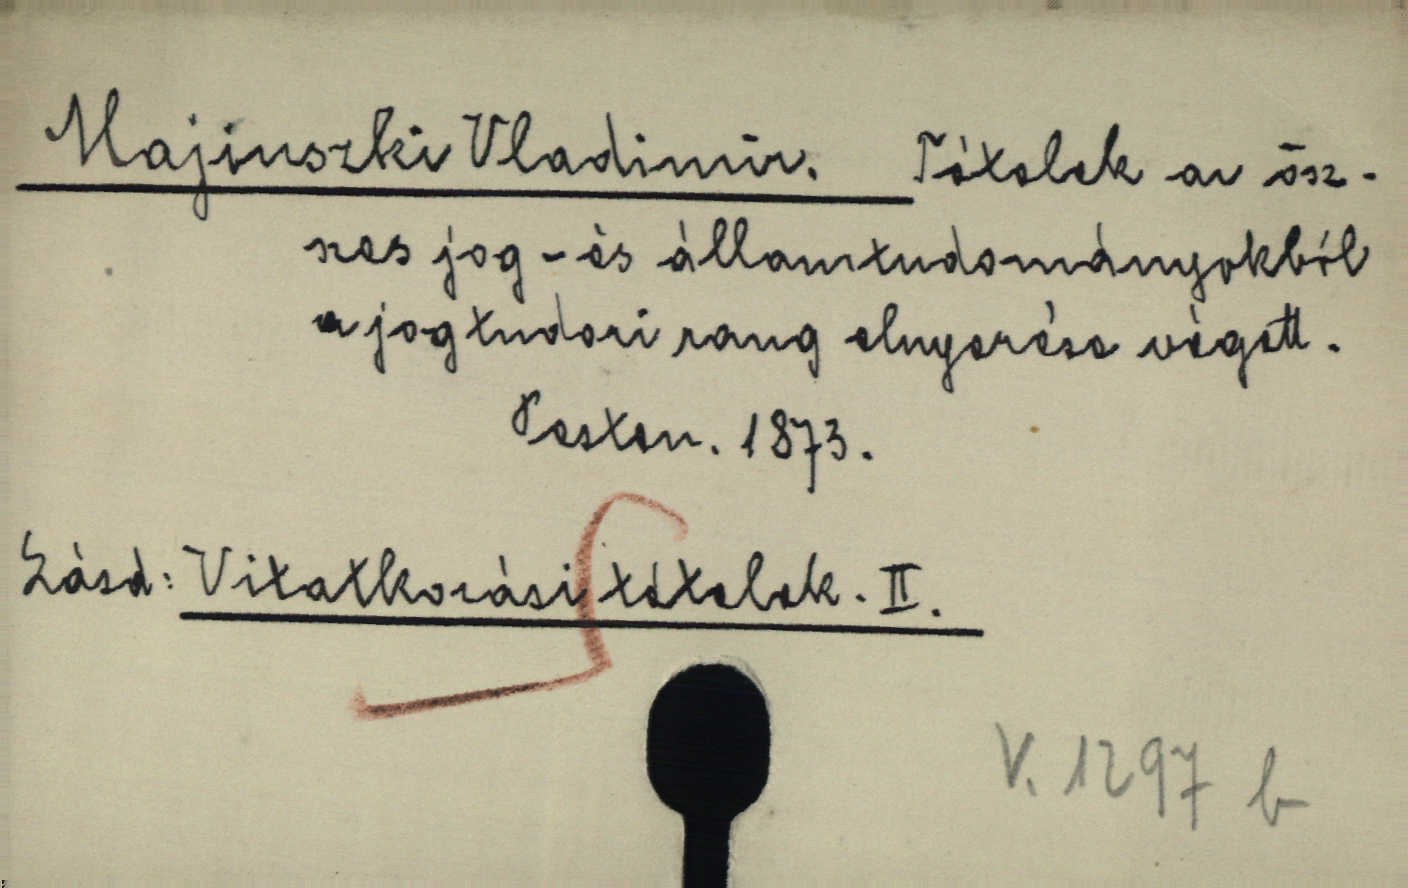 Majinszki Vladimir. Tételek az ösz-
szes jog- és államtudományokból
a jogtudori rang elnyerése végett.
Pesten. 1873.
Lásd: Vitatkozási tételek. II.
V. 1297 b